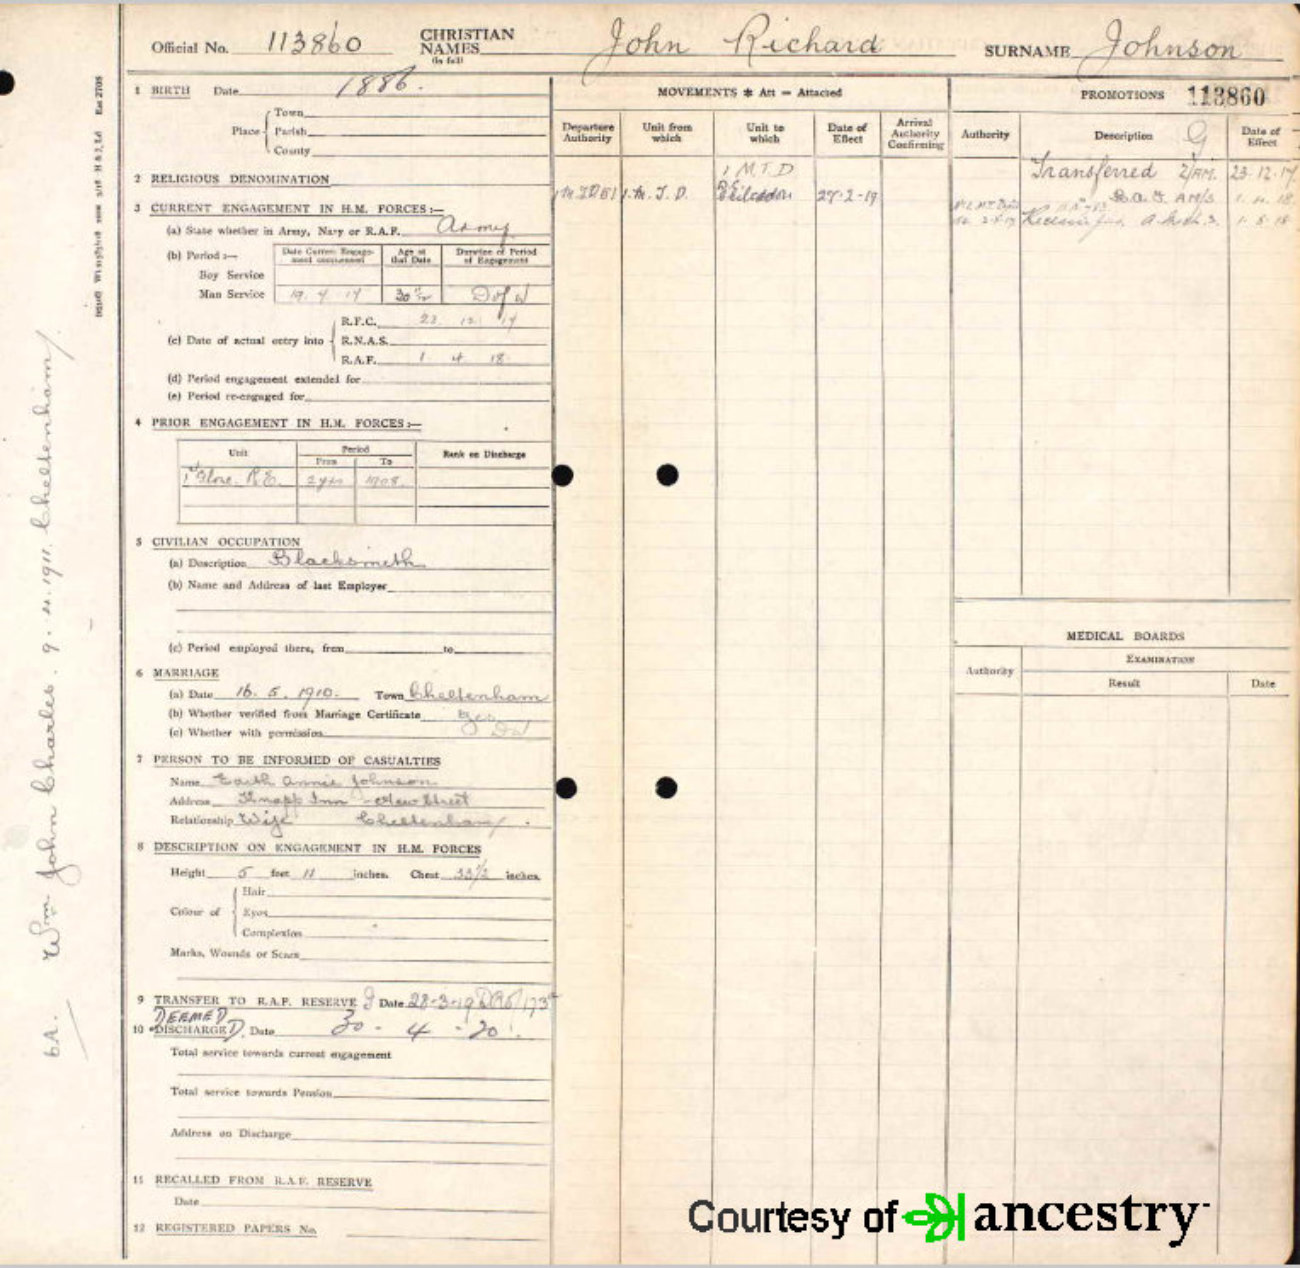 Official No. 113860 CHRISTIAN NAMES (in full) John Richard SURNAME Johnson
1 BIRTH Date 1886.
Place Town
Parish
County
2 RELIGIOUS DENOMINATION
3 CURRENT ENGAGEMENT IN H.M. FORCES:—
(a) State whether in Army, Navy or R.A.F. Army
(b) Period:— Date Current Engagement commenced Age at that Date Duration of Period of Engagement
Boy Service
Man Service 19. 4 17 30 D of W
(c) Date of actual entry into R.F.C. 23. 12. 17
R.N.A.S.
R.A.F. 1 4 18
(d) Period engagement extended for
(e) Period re-engaged for
4 PRIOR ENGAGEMENT IN H.M. FORCES:—
Unit Period Rank on Discharge
From To
1st Glouc. R.E. 2 yrs 1908.
5 CIVILIAN OCCUPATION
(a) Description Blacksmith
(b) Name and Address of last Employer
(c) Period employed there, from to
6 MARRIAGE
(a) Date 16. 5. 1910. Town Cheltenham
(b) Whether verified from Marriage Certificate Yes
(c) Whether with permission
7 PERSON TO BE INFORMED OF CASUALTIES
Name Edith Annie Johnson
Address Knapp Inn - New Street
Relationship Wife Cheltenham
8 DESCRIPTION ON ENGAGEMENT IN H.M. FORCES
Height 5 feet 11 inches. Chest 33½ inches.
Colour of Hair
Eyes
Complexion
Marks, Wounds or Scars
9 TRANSFER TO R.A.F. RESERVE G Date 28-3-19
DEEMED
10 *DISCHARGED, Date 30 - 4 - 20.
Total service towards current engagement
Total service towards Pension
Address on Discharge
11 RECALLED FROM R.A.F. RESERVE
Date
12 REGISTERED PAPERS No.
MOVEMENTS * Att = Attached
Departure Authority Unit from which Unit to which Date of Effect Arrival Authority Confirming
1 M.T.D
1 M.T.D. 27-2-19
PROMOTIONS 113860
Authority Description G Date of Effect
Transferred 2/AM. 23.12.17
R.a.F. AM/3 1. 4. 18
1. 5. 18
MEDICAL BOARDS
Authority EXAMINATION
Result Date
6A. Wm John Charles. 9. 4. 1911. Cheltenham
Courtesy of ancestry